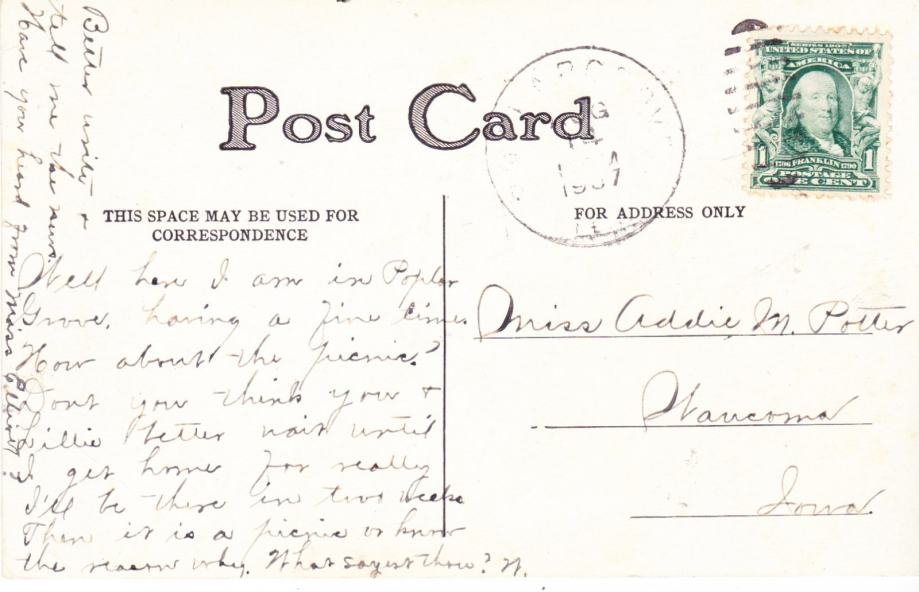 Post Card
THIS SPACE MAY BE USED FOR
CORRESPONDENCE
FOR ADDRESS ONLY
SERIES 1902
UNITED STATES OF
AMERICA
1706 FRANKLIN 1790
POSTAGE
1 1
ONE CENT
1907
Well here I am in Poplar
Grove, having a fine time
How about the picnic?
Dont you think you &
Lillie better wait until
I get home for really
I'll be there in two weeks
Then it is a picnic or know
the reason why. What sayest thou? N.
Better write &
tell me the news.
Have you heard from Miss Elliott?
Miss Addie M. Potter
Waucoma
Iowa.